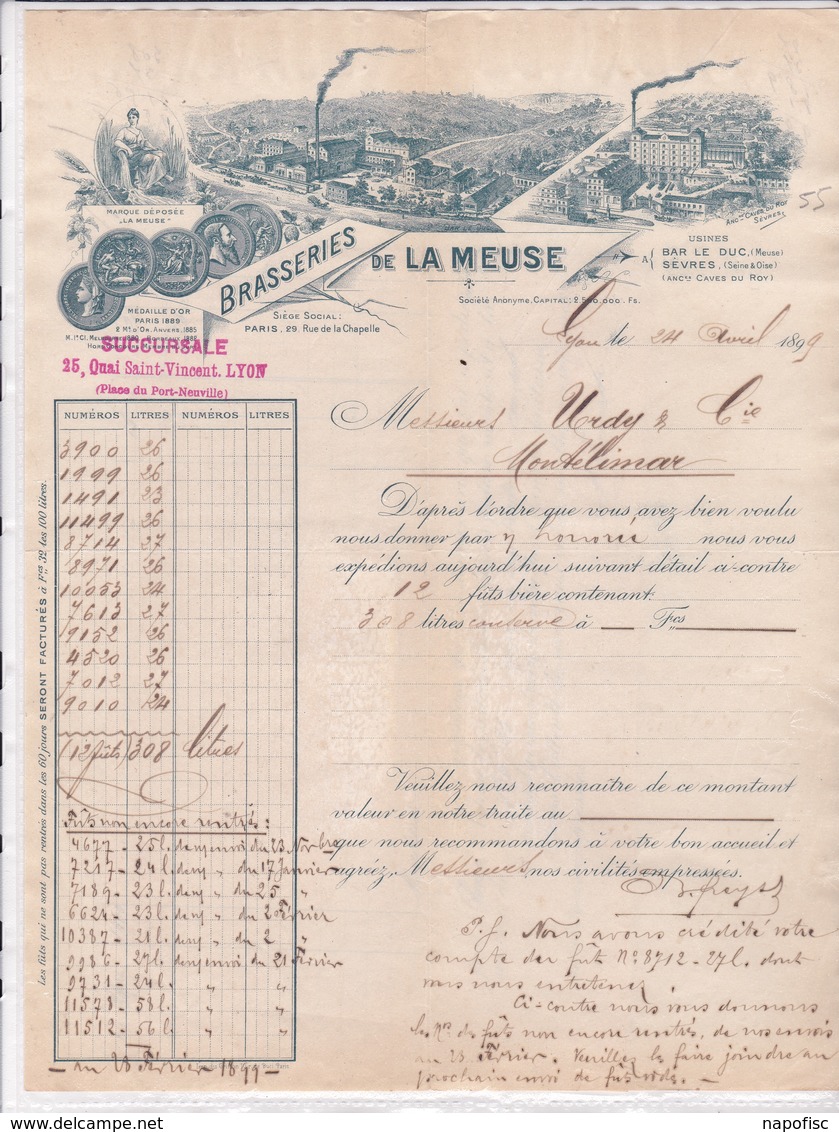 MARQUE DÉPOSÉE
"LA MEUSE"
ANCnes CAVES DU ROY
SÈVRES.
55
BRASSERIES DE LA MEUSE
USINES
A { BAR LE DUC, (Meuse)
SÈVRES, (Seine & Oise)
(ANCnes CAVES DU ROY)
Société Anonyme, CAPITAL: 2,500,000 Fs.
SIÈGE SOCIAL:
PARIS, 29, Rue de la Chapelle
MÉDAILLE D'OR
PARIS 1889
2 Mes D'OR, ANVERS, 1885
SUCCURSALE
25, Quai Saint-Vincent. LYON
(Place du Port-Neuville)
Lyon le 24 Avril 1899
Messieurs Urdy & Cie
Montélimar
D'après l'ordre que vous avez bien voulu
nous donner par nous vous
expédions aujourd'hui suivant détail ci-contre
12 fûts bière contenant
308 litres conserve à Fcs
Veuillez nous reconnaître de ce montant
valeur en notre traite au
que nous recommandons à votre bon accueil et
agréez, Messieurs, nos civilités empressées.
P.S. Nous avons crédité votre
compte du fût No 8712 - 27 l. dont
vous nous entretenez
Ci-contre nous vous donnons
les Nos des fûts non encore rentrés, de nos envois
au 23 Février. Veuillez les faire joindre au
prochain envoi de fûts vides. —
NUMÉROS LITRES NUMÉROS LITRES
3900 26
1999 26
1491 23
11499 26
8714 27
8971 26
10053 24
7613 27
9152 26
4520 26
7012 27
9010 24
(12 fûts) 308 litres
Fûts non encore rentrés:
4677 - 25 l. de n/ envoi du 23 Novbre
7217 - 24 l. de n/ " du 17 Janvier
7189 - 23 l. de n/ " du 25 "
6624 - 23 l. de n/ " du 2 Février
10387 - 21 l. de n/ " du 2 "
9986 - 27 l. de n/ envoi du 21 Février
9731 - 24 l. " "
11578 - 58 l. " "
11512 - 56 l. " "
— au 28 Février 1899 —
Les fûts qui ne sont pas rentrés dans les 60 jours SERONT FACTURÉS à Fcs 32 les 100 litres.
napofisc